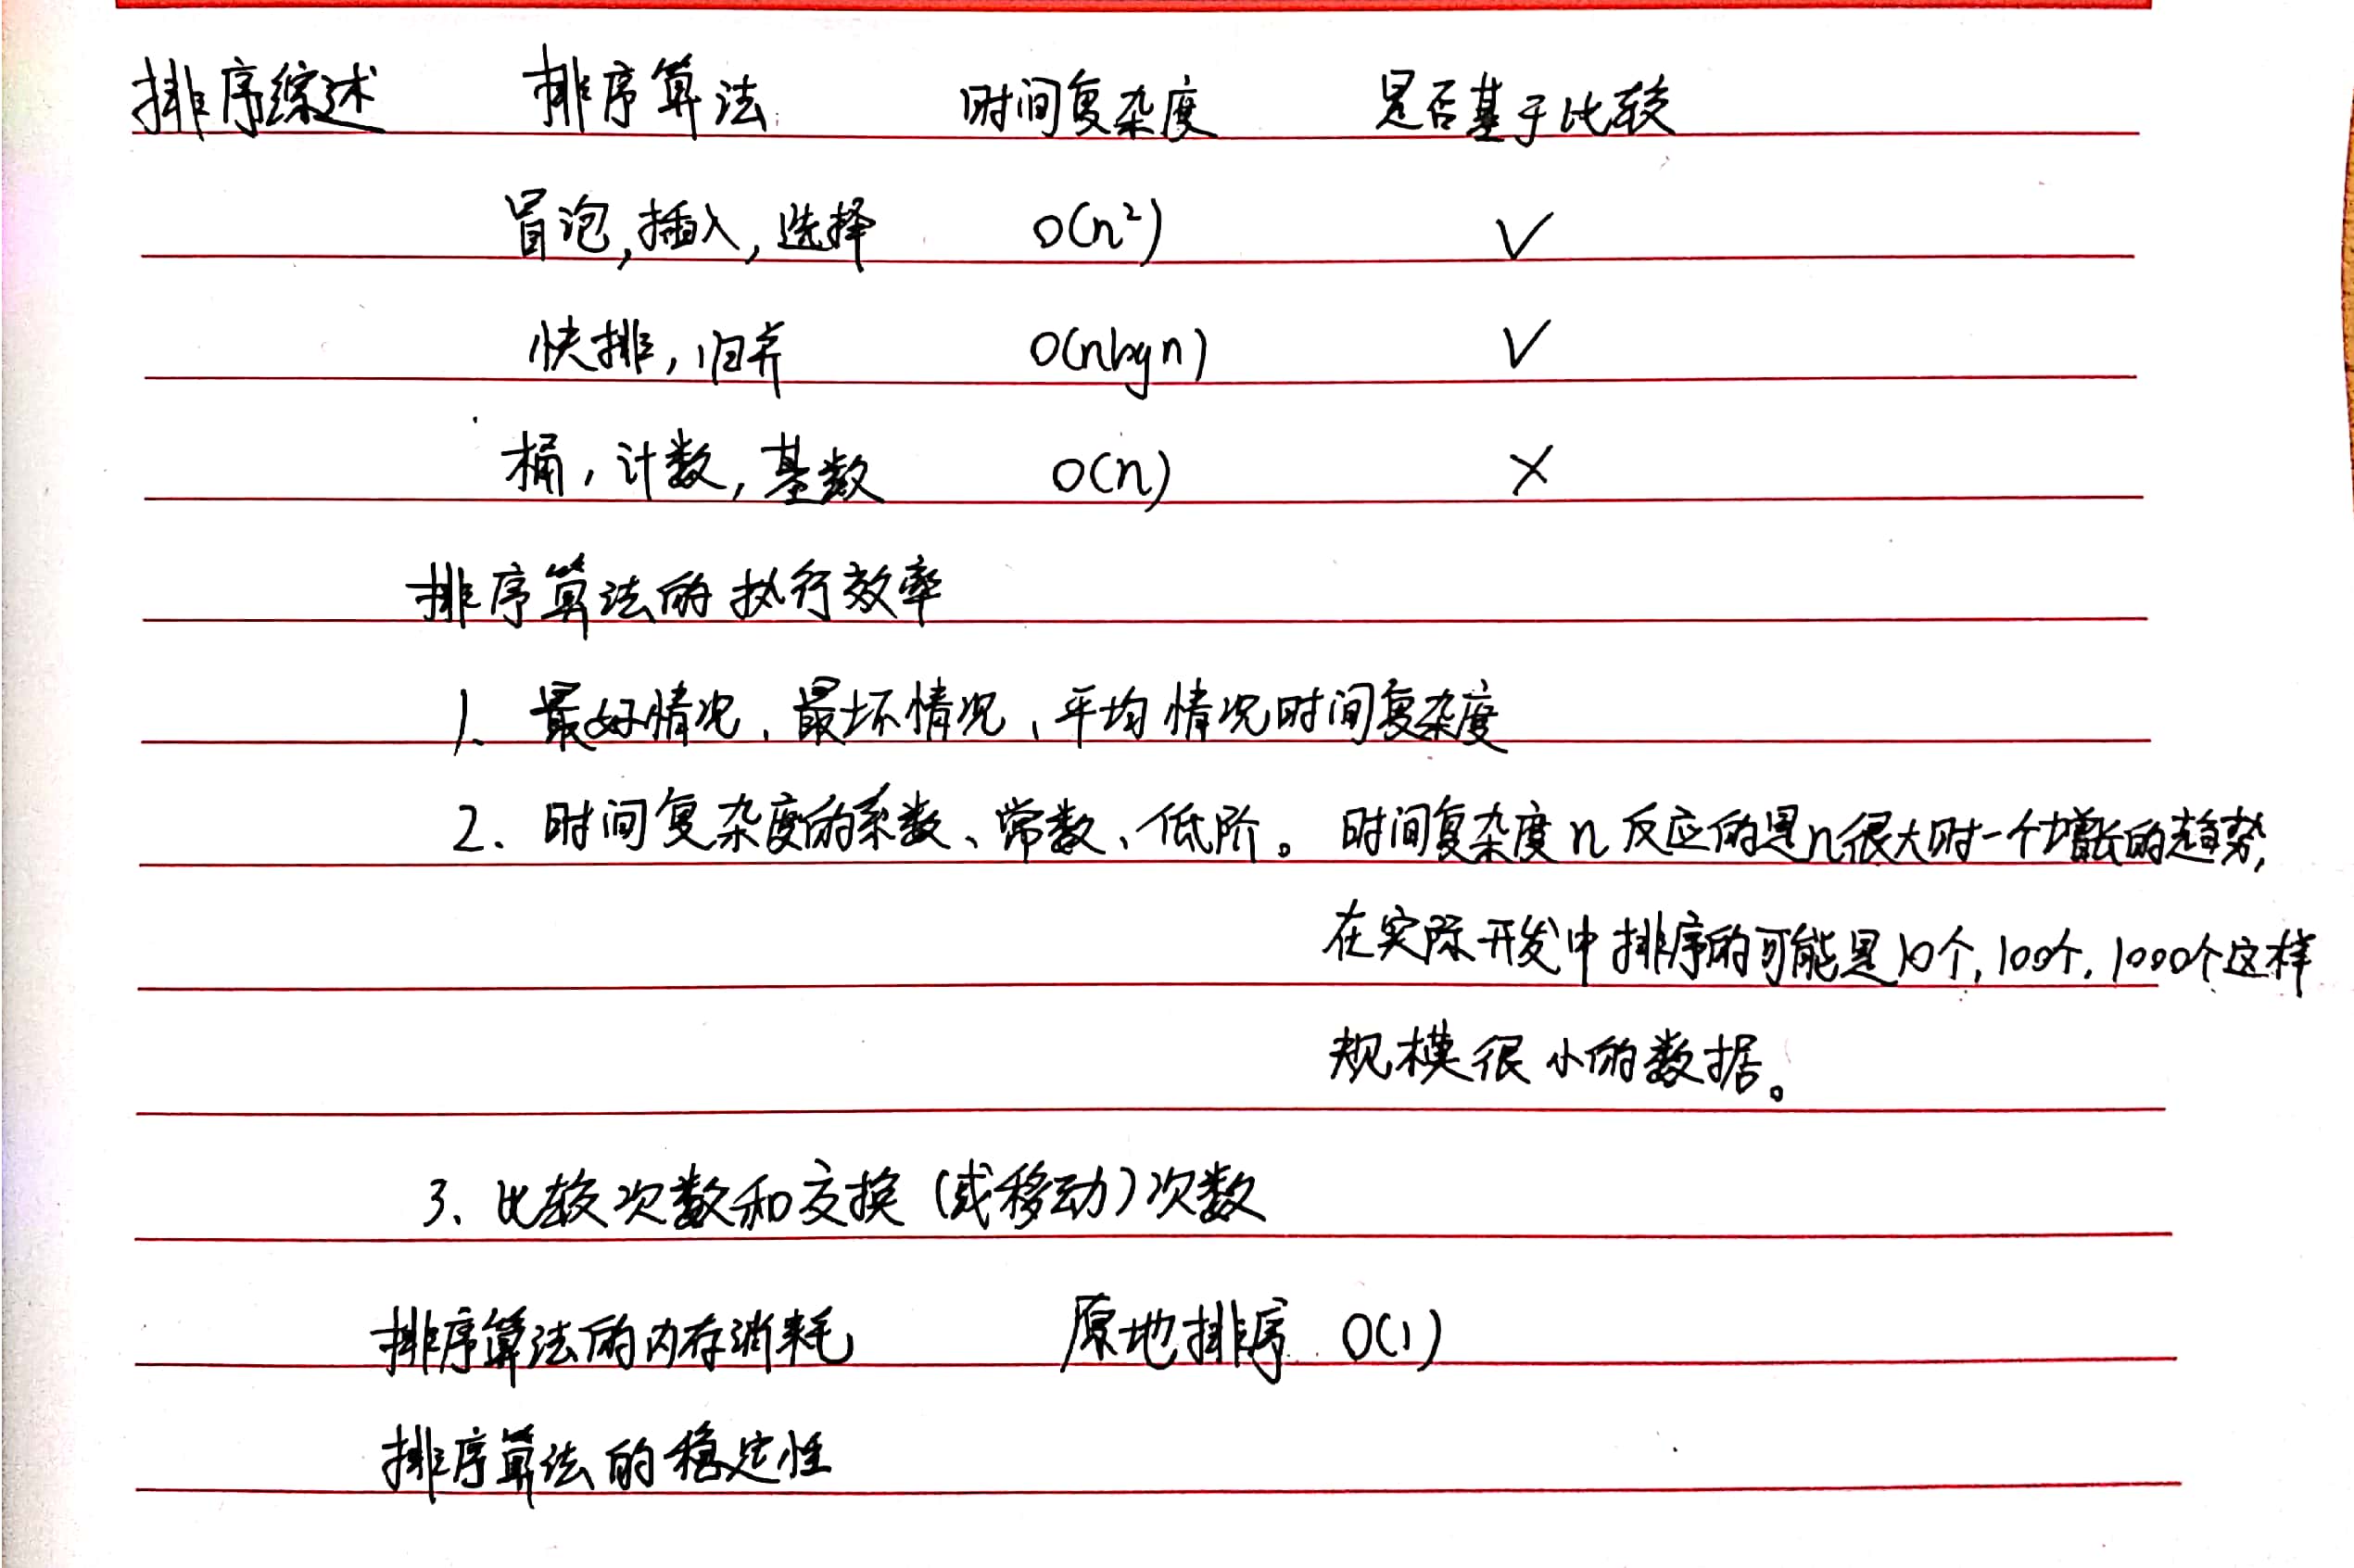 排序综述 排序算法 时间复杂度 是否基于比较
冒泡,插入,选择 O(n²) √
快排,归并 O(nlogn) √
桶,计数,基数 O(n) ×
排序算法的执行效率
1、最好情况、最坏情况、平均情况时间复杂度
2、时间复杂度的系数、常数、低阶。时间复杂度n反应的是n很大时一个增长的趋势,
在实际开发中排序的可能是10个,100个,1000个这样
规模很小的数据。
3、比较次数和交换(或移动)次数
排序算法的内存消耗 原地排序 O(1)
排序算法的稳定性